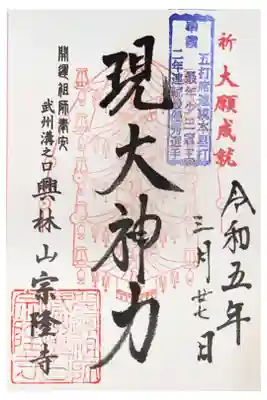 祈 大願成就
五打席連続本塁打
最年少三冠王
二年連続最優秀選手
令和五年
三月廿七日
現大神力
開運祖師奉安
武州溝之口
興林山宗隆寺